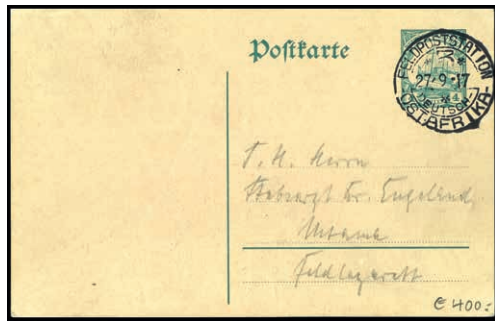 Postkarte
FELDPOSTSTATION
27.9.17
DEUTSCH-
OSTAFRIKA
T. H. Herrn
Stabsarzt Dr. Engeland,
Feldlazarett
€ 400:-